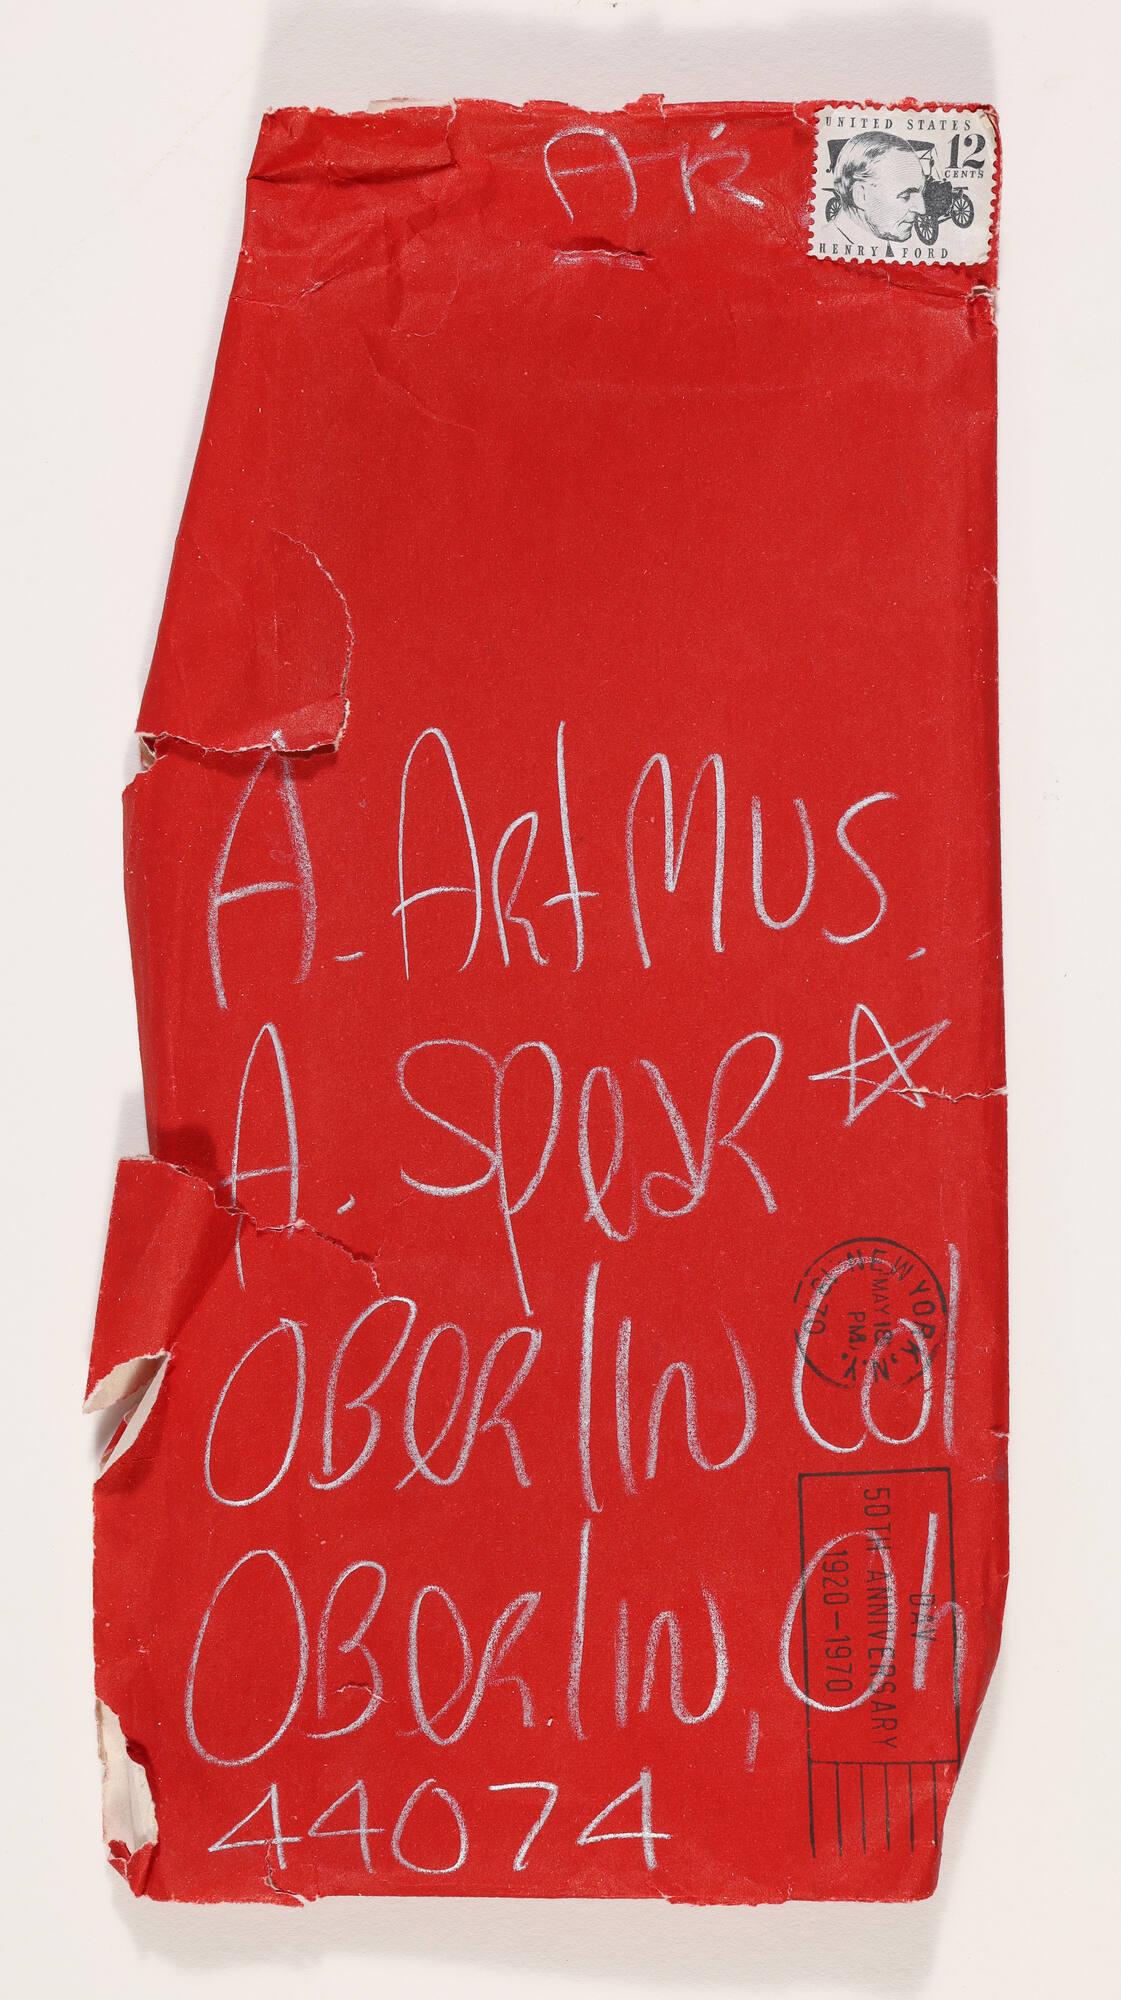 AR
UNITED STATES
12
CENTS
HENRY FORD
A. Art Mus.
A. Spear
Oberlin Col
Oberlin, Oh
44074
NEW YORK, N.Y.
MAY 18
PM
1970
DAV
50TH ANNIVERSARY
1920-1970